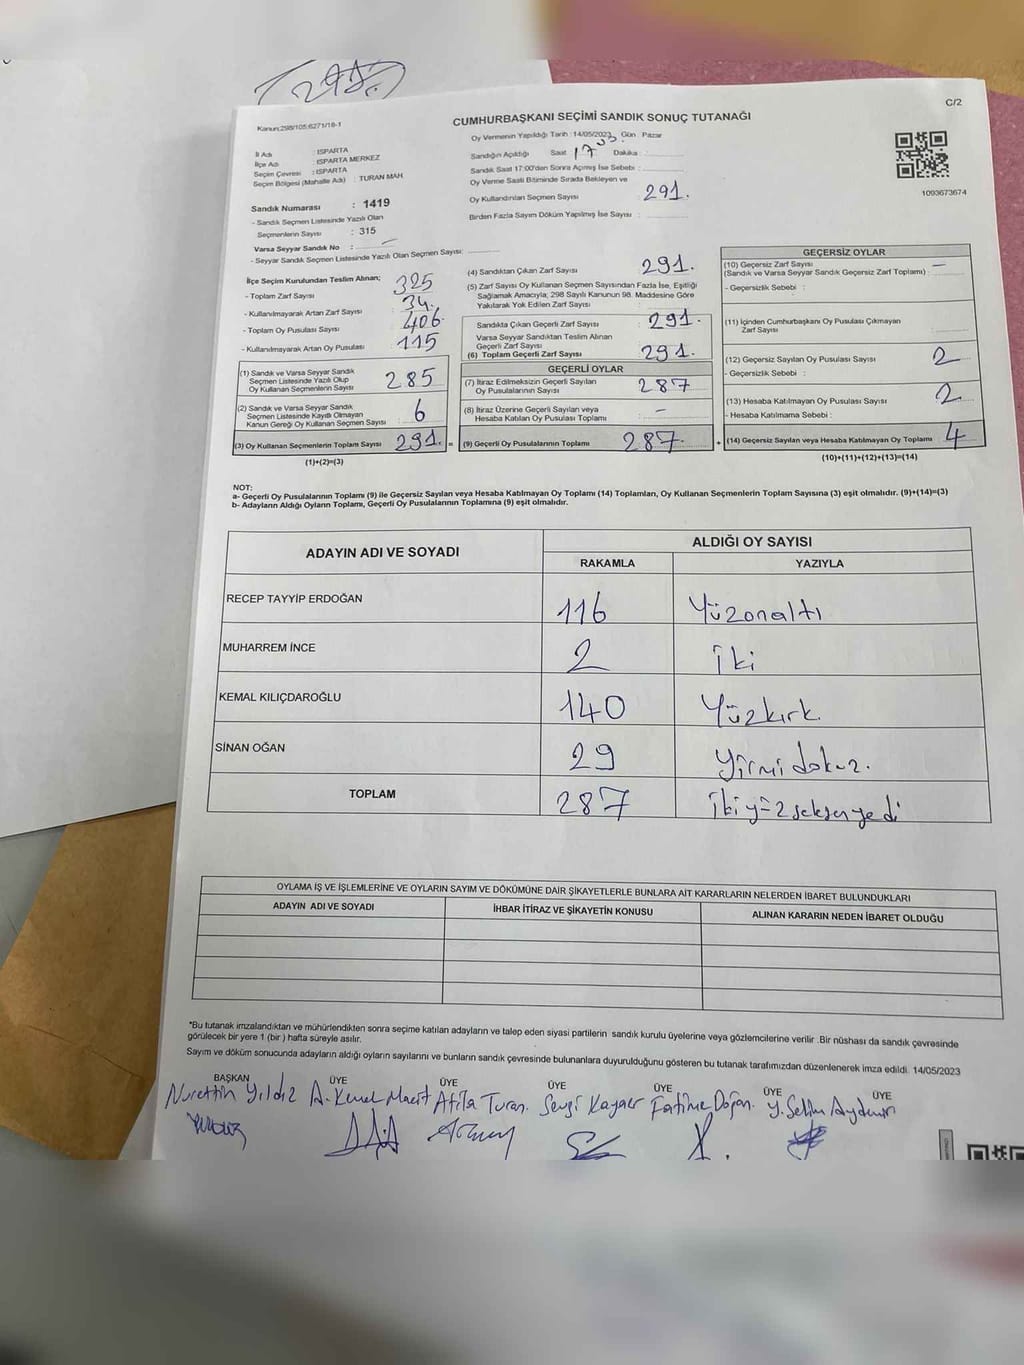 C/2
Kanun:298/105;6271/18-1
CUMHURBAŞKANI SEÇİMİ SANDIK SONUÇ TUTANAĞI
İl Adı : ISPARTA
İlçe Adı : ISPARTA MERKEZ
Seçim Çevresi : ISPARTA
Seçim Bölgesi (Mahalle Adı) : TURAN MAH.
Sandık Numarası : 1419
- Sandık Seçmen Listesinde Yazılı Olan
Seçmenlerin Sayısı : 315
Varsa Seyyar Sandık No :
- Seyyar Sandık Seçmen Listesinde Yazılı Olan Seçmen Sayısı:
Oy Vermenin Yapıldığı Tarih :14/05/2023 Gün Pazar
Sandığın Açıldığı Saat 17 03 Dakika :
Sandık Saat 17:00'den Sonra Açılmış İse Sebebi :
Oy Verme Saati Bitiminde Sırada Bekleyen ve
Oy Kullandırılan Seçmen Sayısı 291.
Birden Fazla Sayım Döküm Yapılmış İse Sayısı :
1093673674
İlçe Seçim Kurulundan Teslim Alınan;
- Toplam Zarf Sayısı 325
- Kullanılmayarak Artan Zarf Sayısı 34.
- Toplam Oy Pusulası Sayısı 406.
- Kullanılmayarak Artan Oy Pusulası 115
(1) Sandık ve Varsa Seyyar Sandık
Seçmen Listesinde Yazılı Olup
Oy Kullanan Seçmenlerin Sayısı 285
(2) Sandık ve Varsa Seyyar Sandık
Seçmen Listesinde Kayıtlı Olmayan
Kanun Gereği Oy Kullanan Seçmen Sayısı 6
(3) Oy Kullanan Seçmenlerin Toplam Sayısı 291. =
(1)+(2)=(3)
(4) Sandıktan Çıkan Zarf Sayısı 291.
(5) Zarf Sayısı Oy Kullanan Seçmen Sayısından Fazla İse, Eşitliği
Sağlamak Amacıyla; 298 Sayılı Kanunun 98. Maddesine Göre
Yakılarak Yok Edilen Zarf Sayısı :
Sandıkta Çıkan Geçerli Zarf Sayısı : 291.
Varsa Seyyar Sandıktan Teslim Alınan
Geçerli Zarf Sayısı :
(6) Toplam Geçerli Zarf Sayısı : 291.
GEÇERLİ OYLAR
(7) İtiraz Edilmeksizin Geçerli Sayılan
Oy Pusulalarının Sayısı : 287
(8) İtiraz Üzerine Geçerli Sayılan veya
Hesaba Katılan Oy Pusulası Toplamı : -
(9) Geçerli Oy Pusulalarının Toplamı : 287 +
GEÇERSİZ OYLAR
(10) Geçersiz Zarf Sayısı
(Sandık ve Varsa Seyyar Sandık Geçersiz Zarf Toplamı) : -
- Geçersizlik Sebebi :
(11) İçinden Cumhurbaşkanı Oy Pusulası Çıkmayan
Zarf Sayısı
(12) Geçersiz Sayılan Oy Pusulası Sayısı 2
- Geçersizlik Sebebi :
(13) Hesaba Katılmayan Oy Pusulası Sayısı 2
- Hesaba Katılmama Sebebi :
(14) Geçersiz Sayılan veya Hesaba Katılmayan Oy Toplamı 4
(10)+(11)+(12)+(13)=(14)
NOT:
a- Geçerli Oy Pusulalarının Toplamı (9) ile Geçersiz Sayılan veya Hesaba Katılmayan Oy Toplamı (14) Toplamları, Oy Kullanan Seçmenlerin Toplam Sayısına (3) eşit olmalıdır. (9)+(14)=(3)
b- Adayların Aldığı Oyların Toplamı, Geçerli Oy Pusulalarının Toplamına (9) eşit olmalıdır.
ADAYIN ADI VE SOYADI
ALDIĞI OY SAYISI
RAKAMLA YAZIYLA
RECEP TAYYİP ERDOĞAN 116 Yüzonaltı
MUHARREM İNCE 2 İki
KEMAL KILIÇDAROĞLU 140 Yüzkırk
SİNAN OĞAN 29 Yirmi dokuz.
TOPLAM 287 İkiyüzseksenyedi
OYLAMA İŞ VE İŞLEMLERİNE VE OYLARIN SAYIM VE DÖKÜMÜNE DAİR ŞİKAYETLERLE BUNLARA AİT KARARLARIN NELERDEN İBARET BULUNDUKLARI
ADAYIN ADI VE SOYADI İHBAR İTİRAZ VE ŞİKAYETİN KONUSU ALINAN KARARIN NEDEN İBARET OLDUĞU
*Bu tutanak imzalandıktan ve mühürlendikten sonra seçime katılan adayların ve talep eden siyasi partilerin sandık kurulu üyelerine veya gözlemcilerine verilir. Bir nüshası da sandık çevresinde
görülecek bir yere 1 (bir) hafta süreyle asılır.
Sayım ve döküm sonucunda adayların aldığı oyların sayılarını ve bunların sandık çevresinde bulunanlara duyurulduğunu gösteren bu tutanak tarafımızdan düzenlenerek imza edildi. 14/05/2023
BAŞKAN ÜYE ÜYE ÜYE ÜYE ÜYE ÜYE
Nurettin Yıldız A. Kemal Macit Atila Turan. Sevgi Kayaer Fatime Doğan. Y. Selim Aydemir